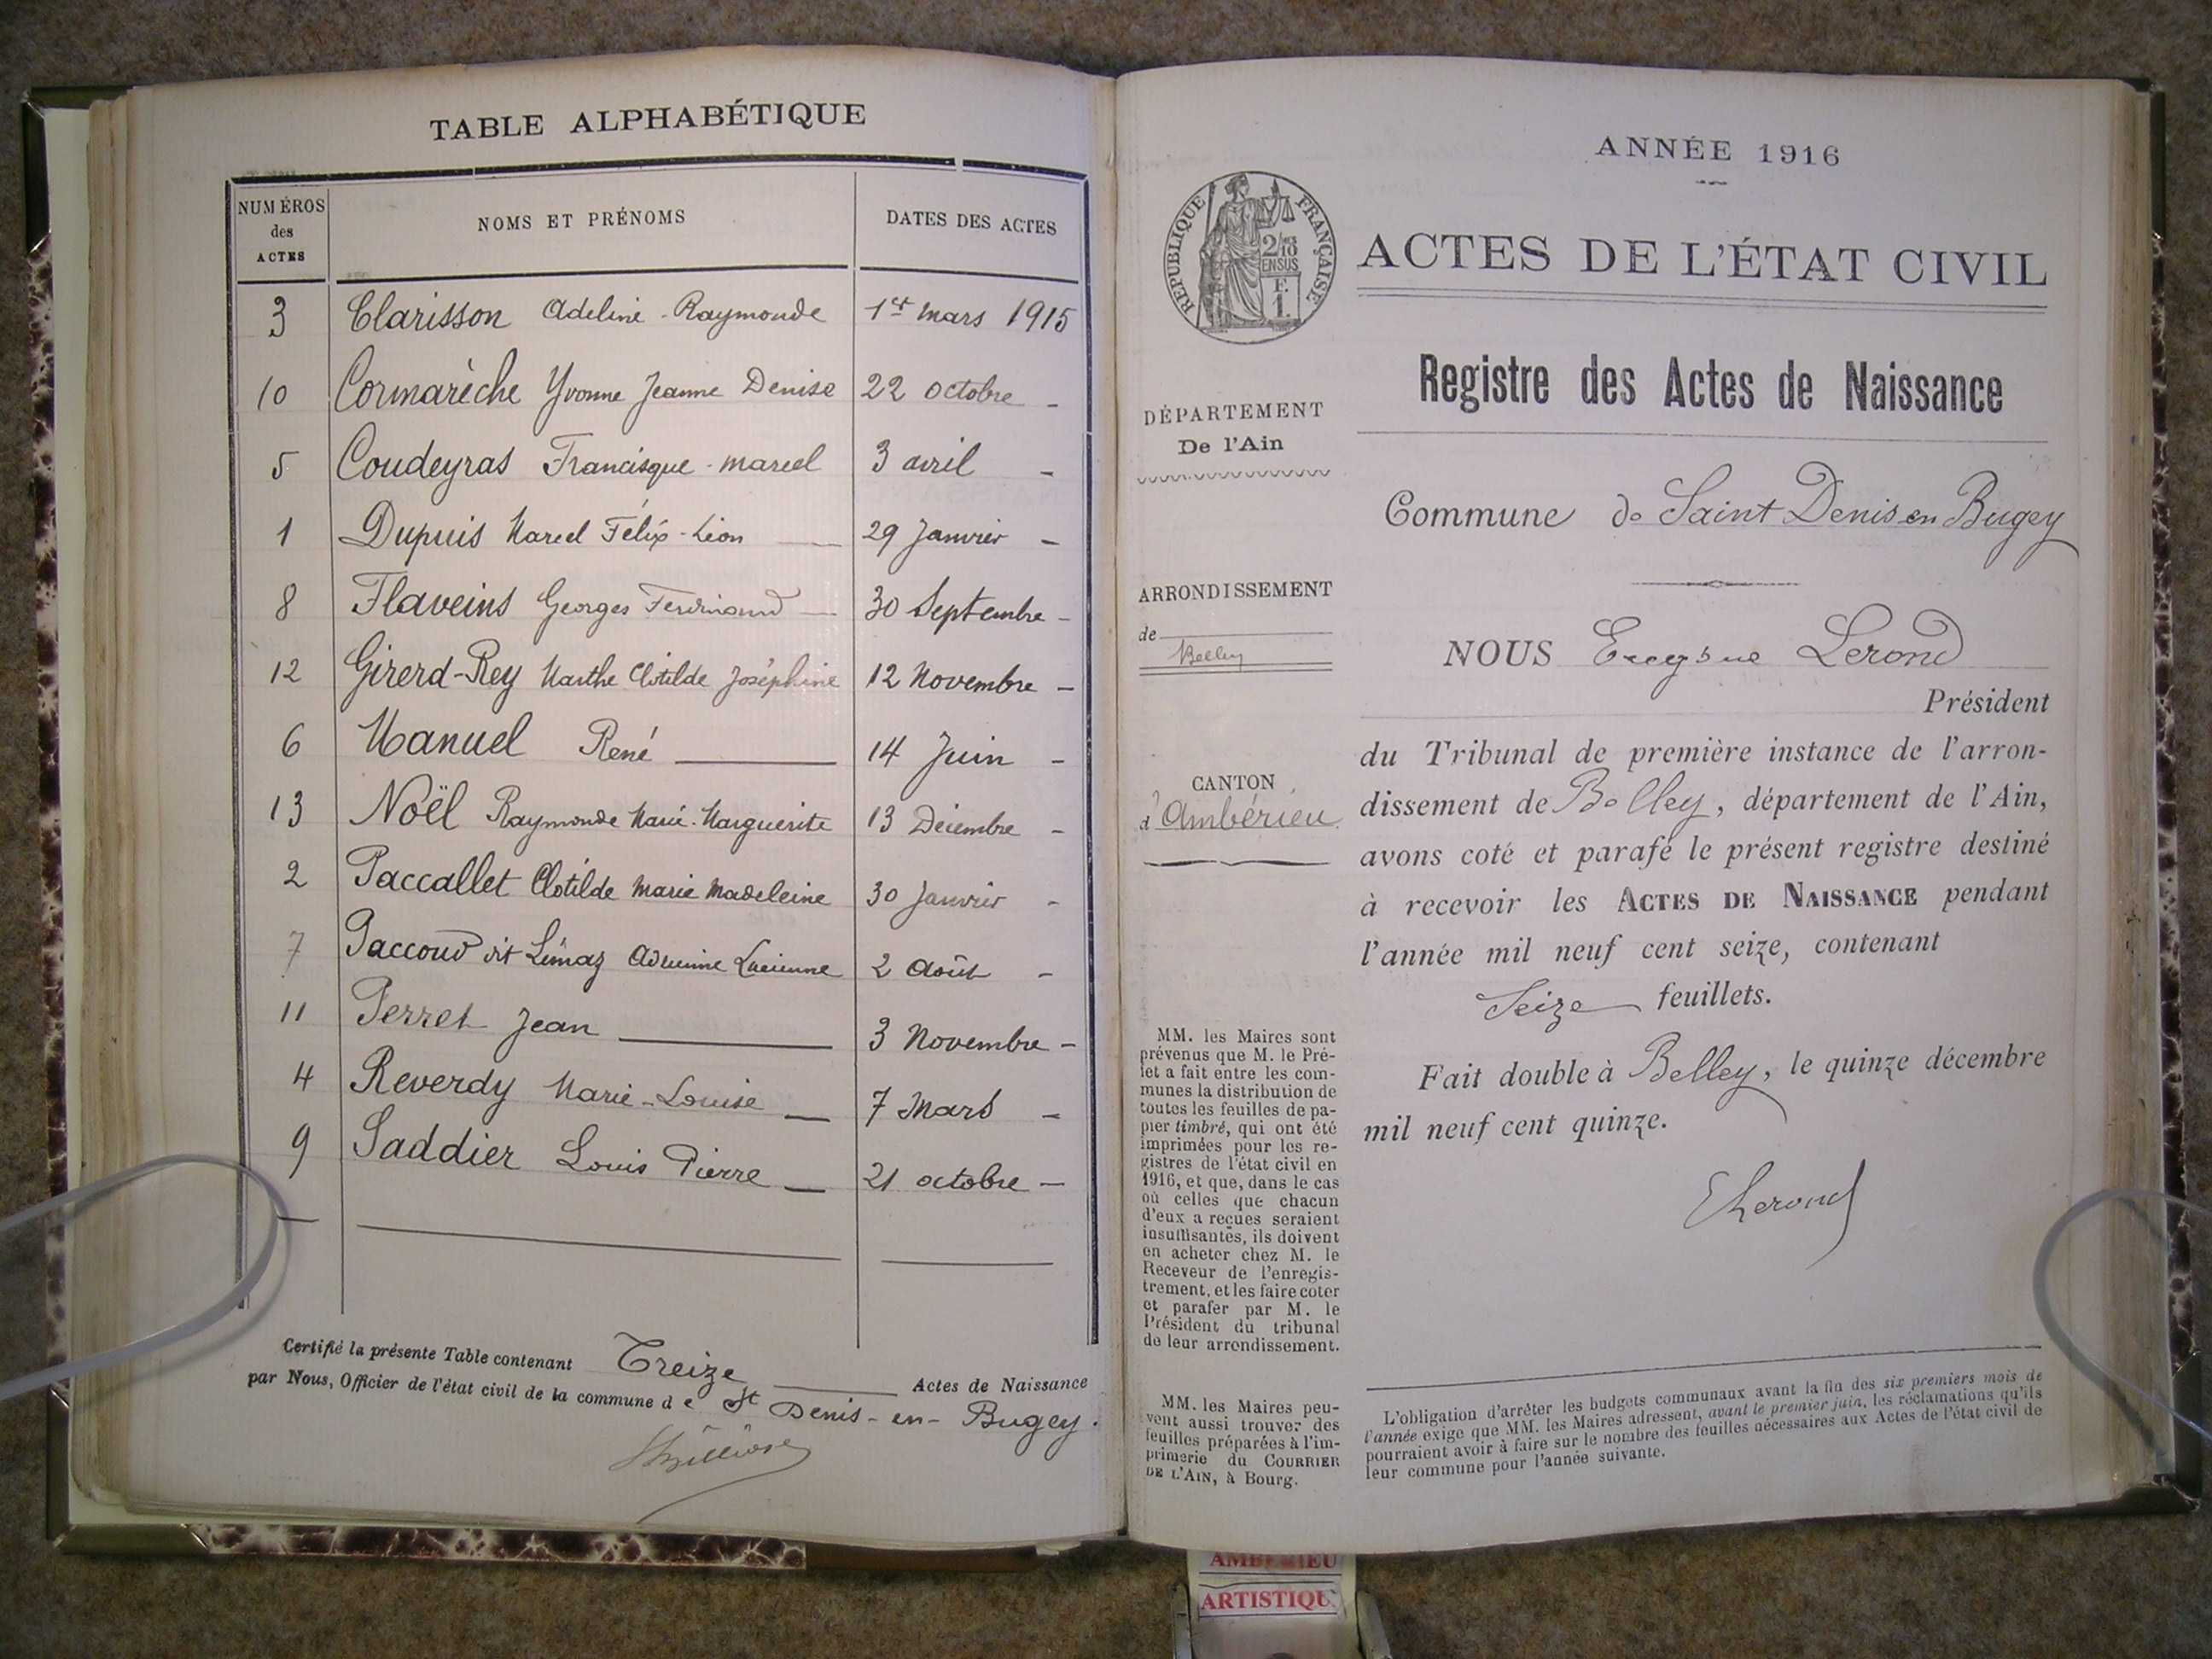 TABLE ALPHABÉTIQUE
NUMÉROS des ACTES | NOMS ET PRÉNOMS | DATES DES ACTES
3 Clarisson Adeline - Raymonde 1er mars 1915
10 Cormarèche Yvonne Jeanne Denise 22 octobre -
5 Coudeyras Francisque - Marcel 3 avril -
1 Dupuis Marcel Félix - Léon 29 Janvier -
8 Flaveins Georges Ferdinand 30 Septembre -
12 Girerd-Rey Marthe Clotilde Joséphine 12 Novembre -
6 Manuel René 14 Juin -
13 Noël Raymonde Marie-Marguerite 13 Décembre -
2 Paccallet Clotilde Marie Madeleine 30 Janvier -
7 Paccoud dit Lémaz Lucienne 2 Août -
11 Perret Jean 3 Novembre -
4 Reverdy Marie-Louise 7 Mars -
9 Saddier Louis Pierre 21 octobre -
Certifié la présente Table contenant Treize Actes de Naissance
par Nous, Officier de l'état civil de la commune de St Denis-en-Bugey.
ANNÉE 1916
RÉPUBLIQUE FRANÇAISE
2/10 EN SUS
F. 1.
ACTES DE L'ÉTAT CIVIL
Registre des Actes de Naissance
DÉPARTEMENT
De l'Ain
Commune de Saint Denis en Bugey
ARRONDISSEMENT
de Belley
CANTON
d'Ambérieu
NOUS Lerond
Président
du Tribunal de première instance de l'arron-
dissement de Belley, département de l'Ain,
avons coté et parafé le présent registre destiné
à recevoir les ACTES DE NAISSANCE pendant
l'année mil neuf cent seize, contenant
Seize feuillets.
Fait double à Belley, le quinze décembre
mil neuf cent quinze.
ELerond
MM. les Maires sont
prévenus que M. le Pré-
fet a fait entre les com-
munes la distribution de
toutes les feuilles de pa-
pier timbré, qui ont été
imprimées pour les re-
gistres de l'état civil en
1916, et que, dans le cas
où celles que chacun
d'eux a reçues seraient
insuffisantes, ils doivent
en acheter chez M. le
Receveur de l'enregis-
trement, et les faire coter
et parafer par M. le
Président du tribunal
de leur arrondissement.
MM. les Maires peu-
vent aussi trouver des
feuilles préparées à l'im-
primerie du COURRIER
DE L'AIN, à Bourg.
L'obligation d'arrêter les budgets communaux avant la fin des six premiers mois de
l'année exige que MM. les Maires adressent, avant le premier juin, les réclamations qu'ils
pourraient avoir à faire sur le nombre des feuilles nécessaires aux Actes de l'état civil de
leur commune pour l'année suivante.
AMBERIEU
ARTISTIQU